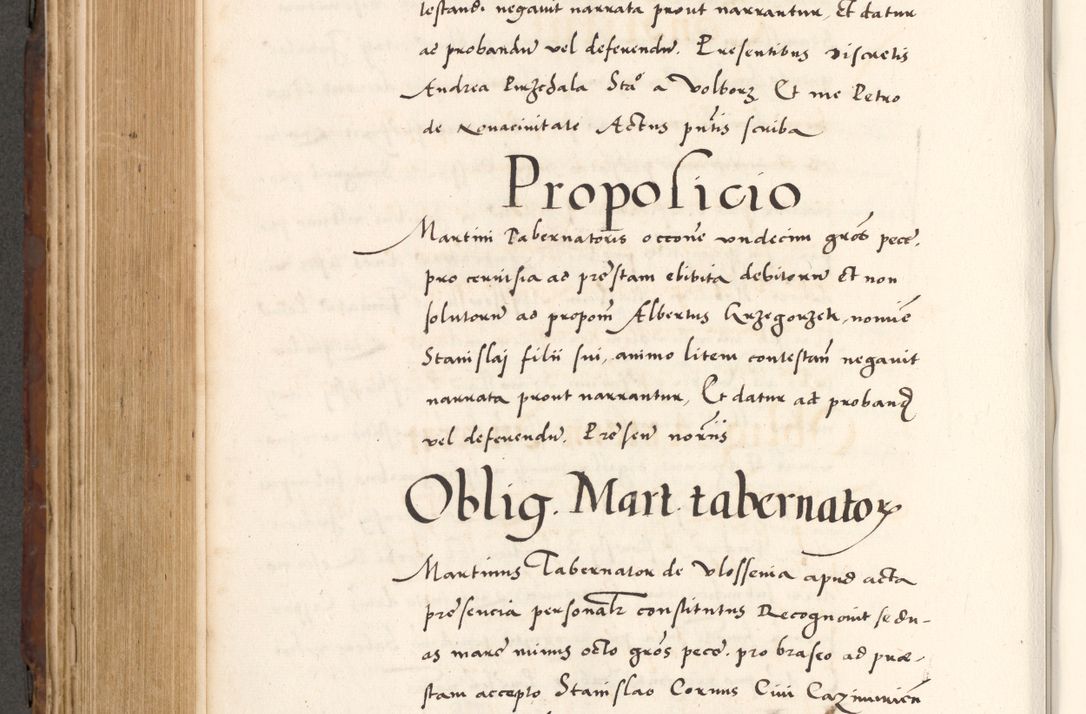 testandi negauit narrata prout narrantur, Et datur
ad probandu vel deferendu. Presentibus Discretis
Andrea Przechala Sta° a Volborz Et me Petro
de Actus pntis scriba
Proposicio
Martini Tabernatoris occone vndecim gros pece.
pro ceruisia ad prestam ebibita debitoru Et non
solutoru ad propom Albertus Grzegorzek, nomie
Stanislaj filii sui, animo litem contestan negauit
narrata prout narrantur, Et datur ad proband
vel deferendu. Presen
Oblig. Mart. tabernator
Martinus Tabernator de Vlossenia apud acta
presencia personalr constitutus Recognouit se du-
as marc minus octo gros pece. pro braseo ad præ-
stam accepto Stanislao Cornus Ciui Cazimirien